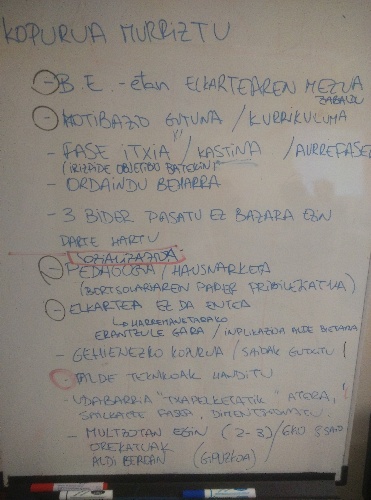 KOPURUA MURRIZTU
- B.E.-etan ELKARTEAREN MEZUA
ZABALDU
- MOTIBAZIO GUTUNA / KURRIKULUMA
- FASE ITXIA / KASTINA / AURREFASEA
(IRIZPIDE OBJETIBO BATEKIN)
- ORDAINDU BEHARRA
- 3 BIDER PASATU EZ BAZARA EZIN
PARTE HARTU
SOZIALIZAZIOA
- PEDAGOGIA / HAUSNARKETA
(BERTSOLARIAREN PAPER PRIBILEGIATUA)
- ELKARTEA EZ DA ENTEA
HARREMANETARAKO
ERANTZULE GARA / INPLIKAZIOA ALDE BIETARA
- GEHIENEZKO KOPURUA / SAIOAK GUTXITU
- ALDE TEKNIKOAK HANDITU
- UDABARRIA "TXAPELKETATIK" ATERA,
SAILKAPEN FASEA,
- MULTZOTAN EGIN (2-3) / 8 SAIO
OREKATUAK
ALDI BEREAN (GIPUZKOA)